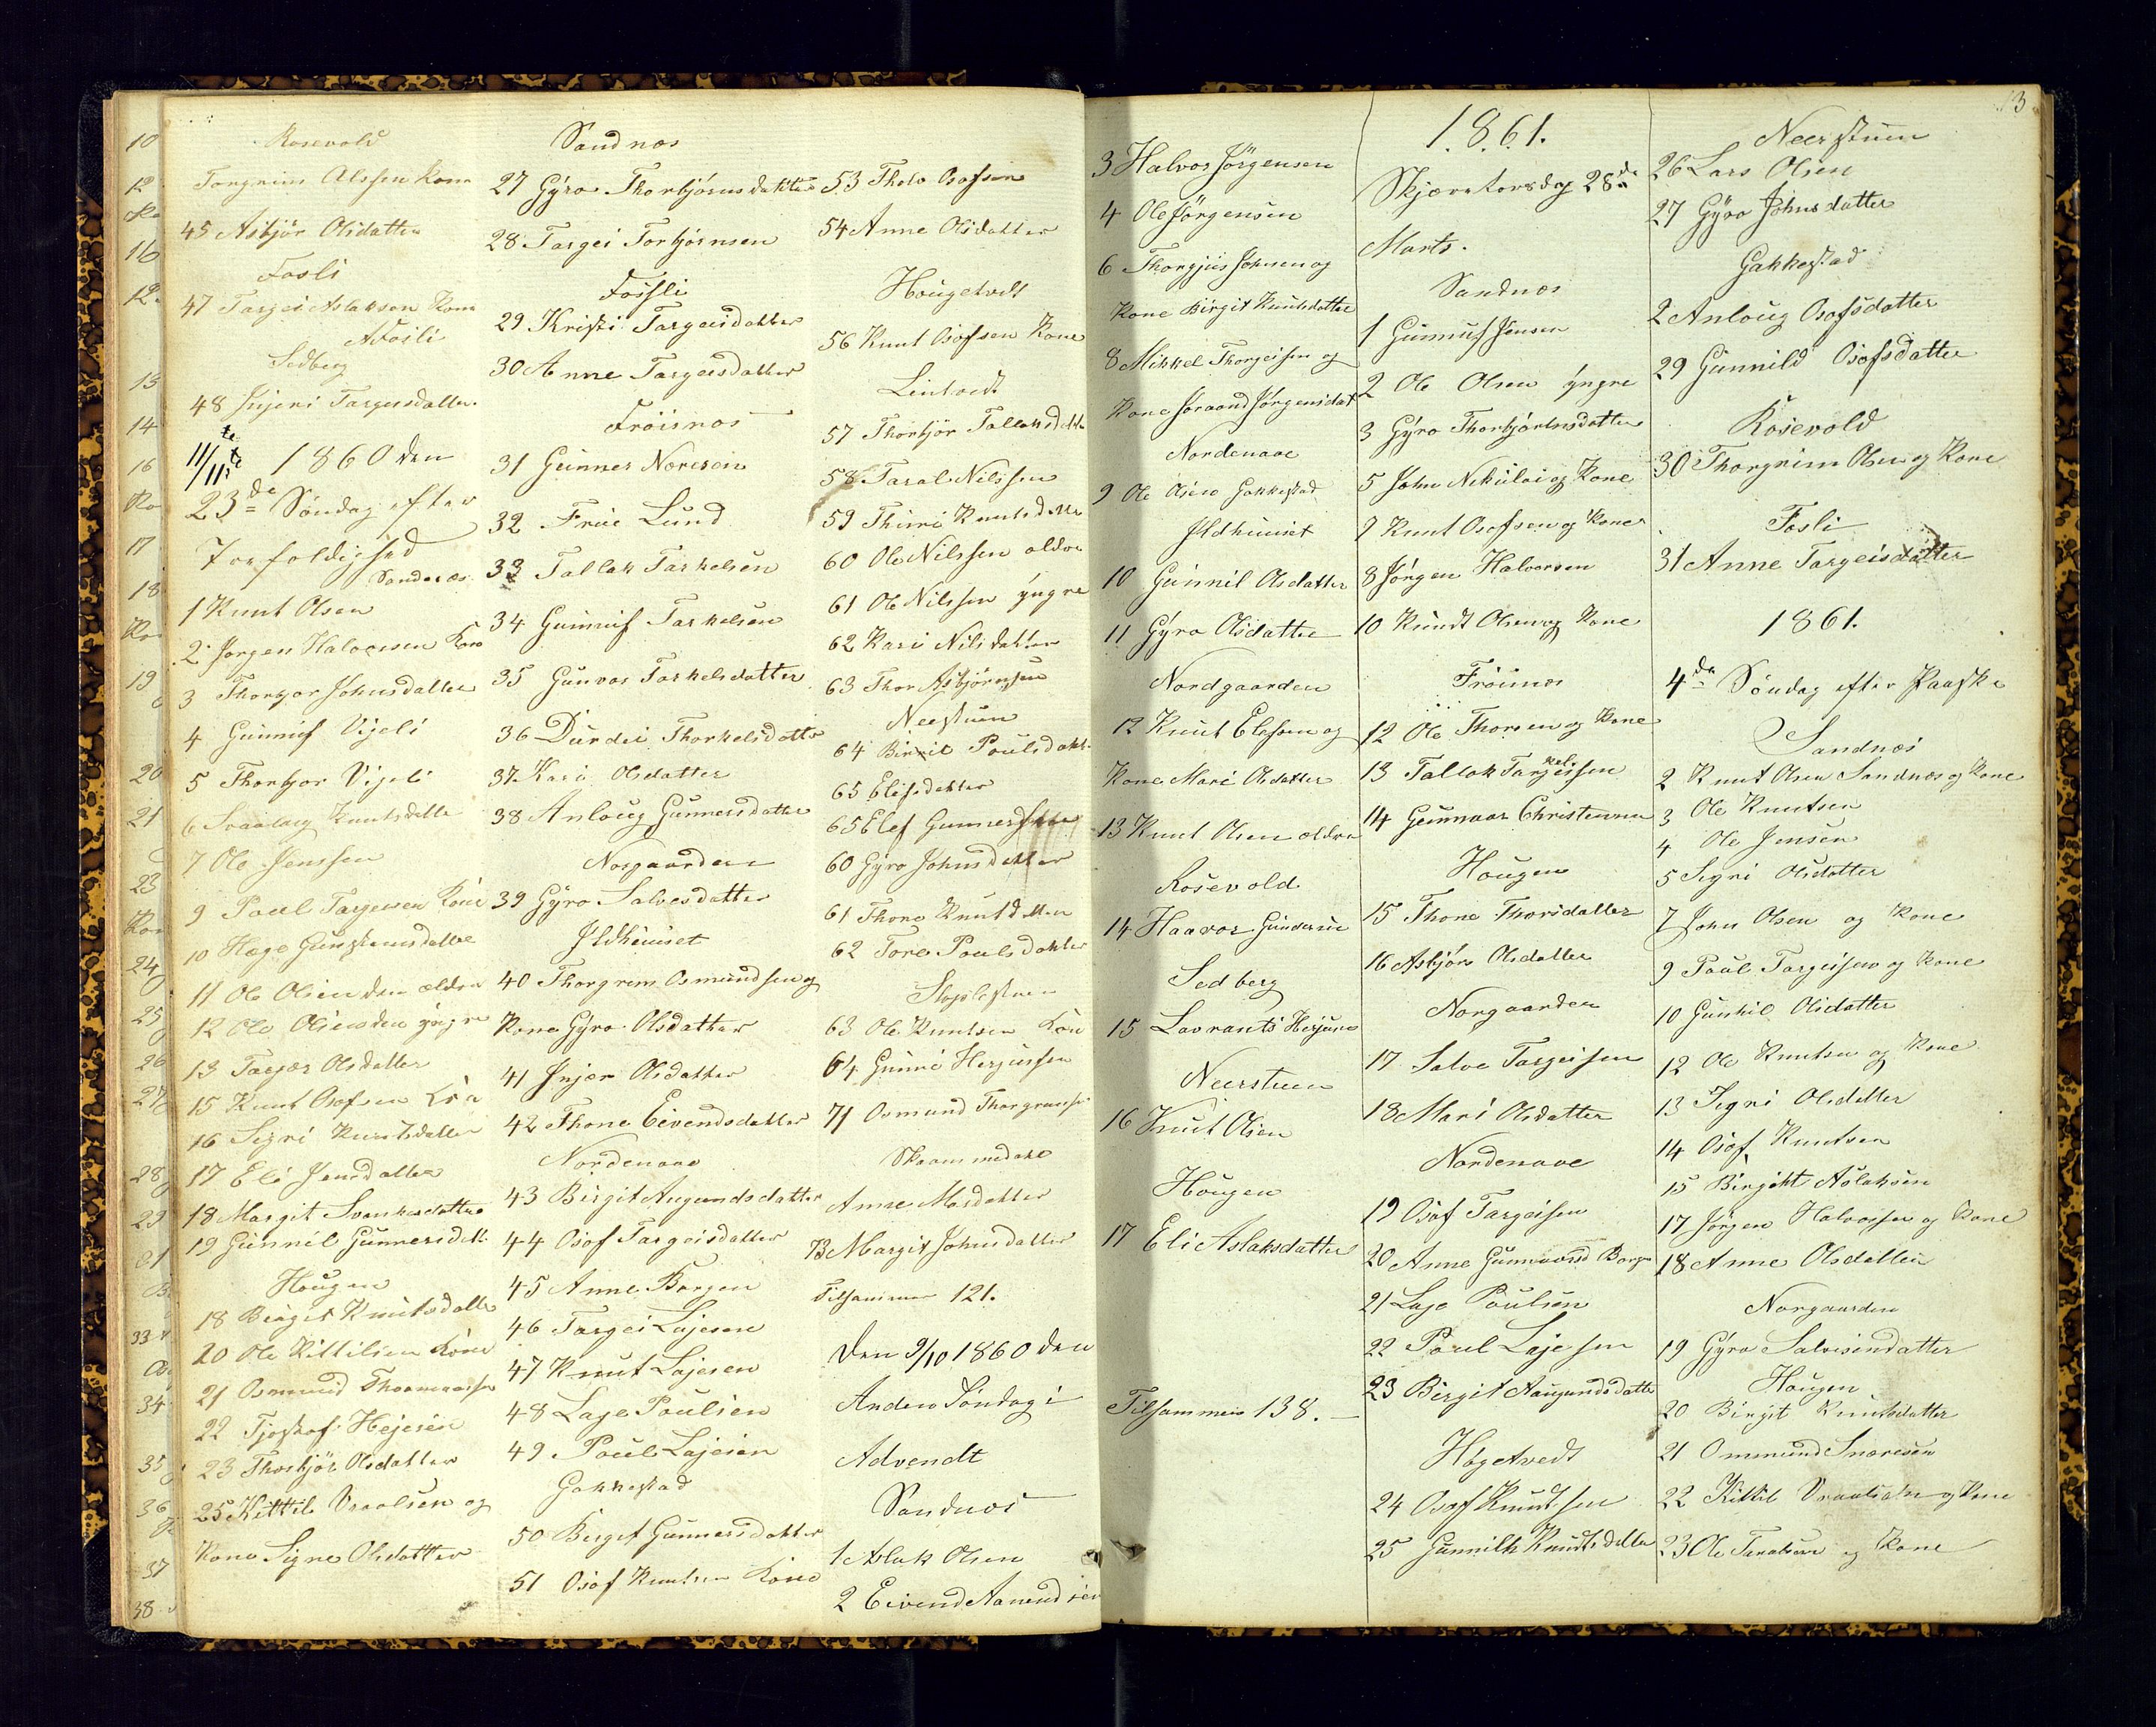 Rosevold
Torgrim Olssen Kone
45 Asbjör Olsdatter
Fosli
47 Targei Aslaksen Kone
Afosli
Sedberg
48 Injeri Targersdatter
11/11te 1860 den
23de Söndag efter
Trefoldighed
Sandnæs
1 Knut Olsen
2 Jørgen Halvorsen Kone
3 Thorgor Johnsdatter
4 Gunnuf Vigeli
5 Thorbjor Vigeli
6 Svaalaug Knutsdatter
7 Ole Jenssen
9 Paul Targeisen Kone
10 Hæge Gunstensdatter
11 Ole Olsen den ældre
12 Ole Olsen den yngre
13 Taarjer Olsdatter
15 Knut Osofsen Kone
16 Sigri Knutsdatter
17 Eli Jensdatter
18 Margit Svenkesdatter
19 Gunnil Gunnersdatt
Hougen
18 Birgit Knutsdatter
20 Ole Kittilsen Kone
21 Osmund
22 Tjostof Hejesen
23 Thorbjör Olsdatter
25 Kittil Vraalsen og
Kone Signe Olsdatter
Sandnæs
27 Gyro Thorbjörnsdatter
28 Targei Torbjørnsen
Fossli
29 Kristi Targeisdatter
30 Anne Targeisdatter
Fröisnæs
31 Gunner Næresen
32 Frue Lund
33 Tallak Tarkelsen
34 Gunnuf Tarkelsen
35 Gunvor Torkelsdatter
36 Durdei Thorkelsdatter
37 Kari Olsdatter
38 Anloug Gunnersdatter
Norgaarden
39 Gyro Salvesdatter
Ildhuuset
40 Thorgrem Osmundsen og
Kone Gyro Olsdatter
41 Injer Olsdatter
42 Thone Eivendsdatter
Nordenaae
43 Birgit Augundsdatter
44 Osof Targeisdatter
45 Anne Borgen
46 Targei Lajesen
47 Knut Lajesen
48 Laje Poulsen
49 Poul Lajesen
Gakkestad
50 Birgit Gunnersdatter
51 Osof Knutsen Kone
53 Tholv Osofsen
54 Anne Olsdatter
Hougetvedt
56 Knut Osofsen Kone
Lintvedt
57 Thorbjör Tallaksdatter
58 Taral Nilssen
59 Thuri Knutsdatter
60 Ole Nilssen ældre
61 Ole Nilssen yngre
62 Kari Nilsdatter
63 Thor Asbjörnsen
Neestuen
64 Birgit Poulsdatt
65 Elefsdatter
65 Elef Gunnersen
60 Gyro Johnsdatter
61 Thone Knutsdatter
62 Tore Poulsdatter
63 Ole Knutsen Kone
64 Gunne Herjussen
71 Osmund Thorgrimsen
Anne Masdatter
73 Margit Johnsdatter
Tilsammen 121.
Den 9/10 1860 den
Anden Söndag i
Advendt
Sandnæs
1 Aslak Olsen
2 Eivend Aanundsen
13
3 Halvor Jörgensen
4 Ole Jörgensen
6 Thorgius Johnsen og
Kone Birgit Knutsdatter
8 Mikkel Thorgeisen og
Kone Joraand Jörgensdat
Nordenaae
9 Ole Olsen Gakkestad
Ildhuuset
10 Gunnil Olsdatter
11 Gyro Olsdatter
Nordgaarden
12 Knut Elefsen og
Kone Mari Olsdatter
13 Knut Olsen ældre
Rosevold
14 Haavor Gundersen
Sedberg
15 Lavrants Herjuse
Neerstuen
16 Knut Olsen
Hougen
17 Eli Aslaksdatter
Tilsammen 138.
1861.
Skjærtorsdag 28de
Marts.
Sandnæs
1 Gunnuf Jensen
2 Ole Olsen yngre
3 Gyro Thorbjörnsdatter
5 John Nikulai og Kone
7 Knut Osofsen og Kone
8 Jörgen Halvorsen
10 Knudt Olsen og Kone
Fröisnæs
12 Ole Thorsen og Kone
13 Tallak Tarkelssen
14 Gunnvor Christenna
Hougen
15 Thone Thorsdatter
16 Asbjörn Olsdatter
Norgaarden
17 Salve Targeisen
18 Mari Olsdatter
Nordenaae
19 Osof Targeisen
20 Anne Gunnarsd Borge
21 Laje Poulsen
22 Poul Lajesen
23 Birgit Aaugundsdatter
Høgetvedt
24 Osof Knudtsen
25 Gunnild Knudtsdatter
Neerstuen
26 Lars Olsen
27 Gyro Johnsdatter
Gakkestad
2 Anloug Osofsdatter
29 Gunnild Osofsdatter
Rosevold
30 Thorgrim Olsen og Kone
Fosli
31 Anne Targeisdatter
1861.
4de Söndag efter Paaske
Sandnæs
2 Knut Olsen Sandnæs og Kone
3 Ole Knutsen
4 Ole Jensen
5 Sigri Olsdatter
7 John Olsen og Kone
9 Poul Targeisen og Kone
10 Gunhil Olsdatter
12 Ole Knutsen og Kone
13 Sigri Olsdatter
14 Osof Knutsen
15 Birgitt Aslaksen
17 Jörgen Halvorsen og Kone
18 Anne Olsdatter
Norgaarden
19 Gyro Salvesendatter
Hougen
20 Birgit Knutsdatter
21 Ommund Snaresen
22 Kittil Vraalsen og Kone
23 Ole Taralsen og Kone